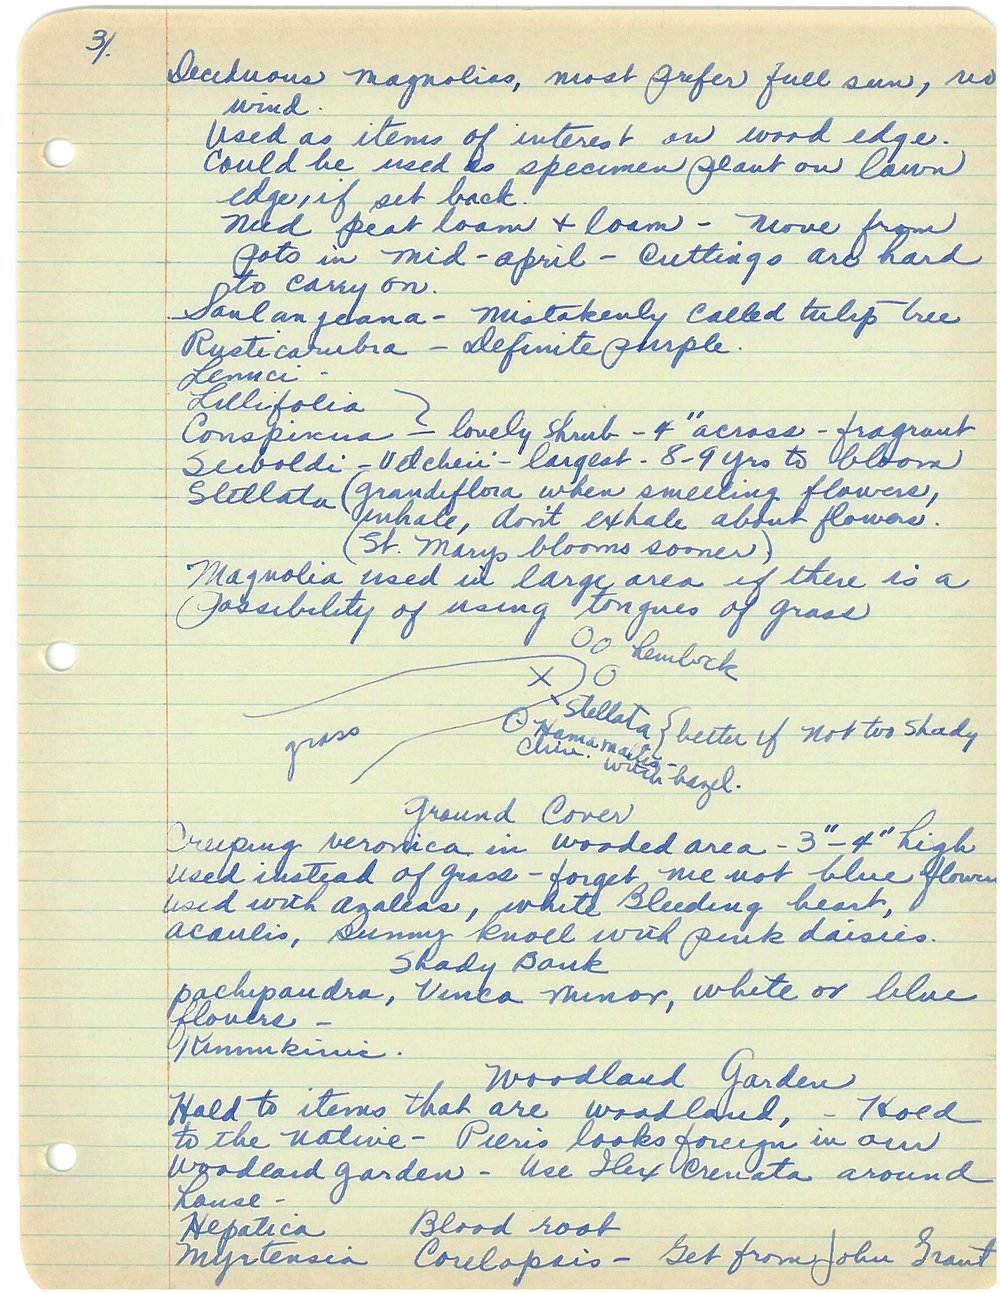 3/.
Deciduous magnolias, most prefer full sun, no
wind.
Used as items of interest on wood edge.
Could be used as specimen plant on lawn
edge, if set back.
Need peat loam + loam - Move from
pots in mid-april - Cuttings are hard
to carry on.
Soulangeana - mistakenly called tulip tree
Rusticarubra - Definite purple.
Lennei -
Lillifolia }
Conspicua - lovely shrub - 4" across - fragrant
Seiboldi - Veitcheii - largest - 8-9 yrs to bloom
Stellata (Grandiflora when smelling flowers,
inhale, don't exhale about flowers.
(St. Marys blooms sooner)
Magnolia used in large area if there is a
Possibility of using tongues of grass
hemlock
X
Stellata } better if not too shady
grass
Hamamalis
Chin. witch-hazel.
Ground Cover
Creeping veronica in wooded area - 3"-4" high
used instead of grass - forget me not blue flowers
used with azaleas, white Bleeding heart,
acaulis, Sunny knoll with pink daisies.
Shady Bank
pachysandra, Vinca Minor, white or blue
flowers -
Kinnukinic.
Woodland Garden
Hold to items that are woodland, - Hold
to the native - Pieris looks foreign in our
Woodland garden - Use Ilex Crenata around
house -
Hepatica Blood root
Myrtensia Corelopsis - Get from John Grant